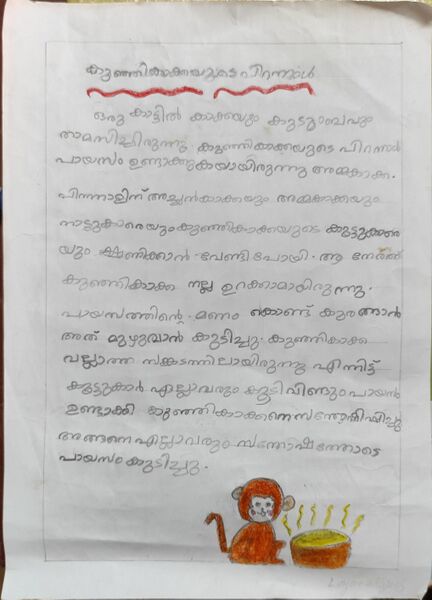 കുഞ്ഞിക്കാക്കയുടെ പിറന്നാൾ
ഒരു കാട്ടിൽ കാക്കയും കുടുംബവും
താമസിച്ചിരുന്നു. കുഞ്ഞിക്കാക്കയുടെ പിറന്നാൾ
പായസം ഉണ്ടാക്കുകയായിരുന്നു അമ്മകാക്ക.
പിന്നാളിന് അച്ഛൻകാക്കയും അമ്മകാക്കയും
നാട്ടുകാരെയും കുഞ്ഞികാക്കയുടെ കൂട്ടുക്കാരെ
യും ക്ഷണിക്കാൻ വേണ്ടിപോയി. ആ നേരത്ത്
കുഞ്ഞിക്കാക്ക നല്ല ഉറക്കാമായിരുന്നു.
പായസത്തിന്റെ മണം കൊണ്ട് കുരങ്ങാൻ
അത് മുഴുവാൻ കുടിച്ചു. കുഞ്ഞികാക്ക
വല്ലാത്ത സങ്കടത്തിലായിരുന്നു എന്നിട്ട്
കൂട്ടുകാർ എല്ലാവരും കൂടി വീണ്ടും പായസം
ഉണ്ടാക്കി കുഞ്ഞികാക്കനെ സന്തോഷിപ്പിച്ചു
അങ്ങനെ എല്ലാവരും സന്തോഷത്തോടെ
പായസം കുടിച്ചു.